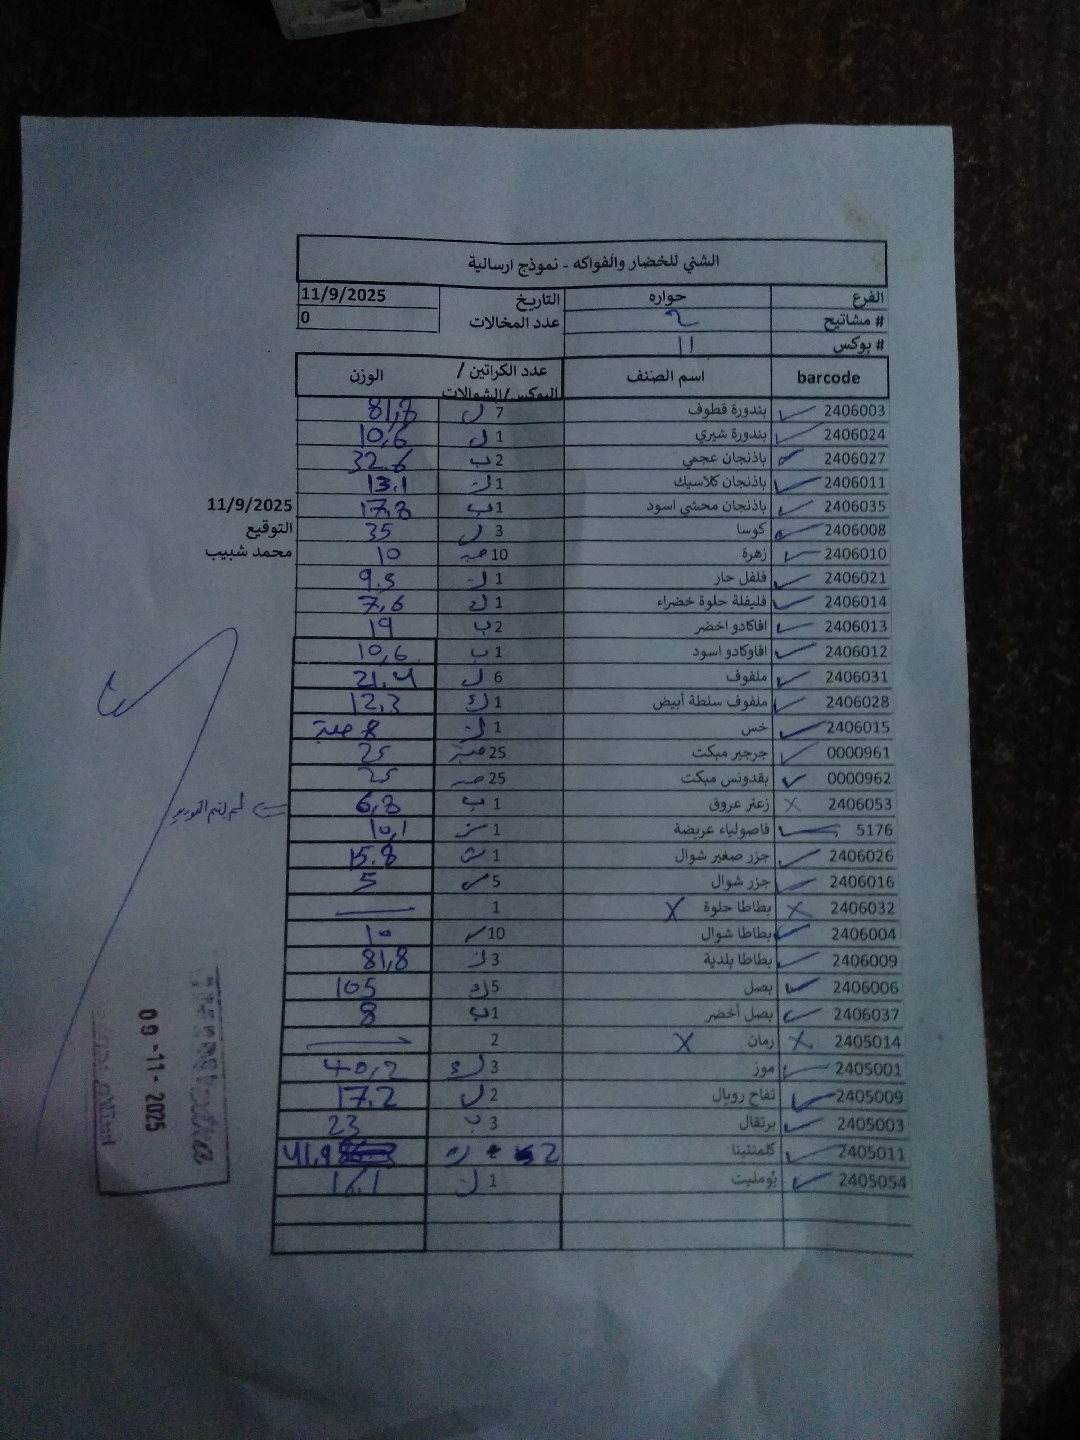 الشني للخضار والفواكه - نموذج ارسالية
الفرع حواره التاريخ 11/9/2025
# مشاتيح 2 عدد المخالات 0
# بوكس 11
barcode اسم الصنف عدد الكراتين / البوكس/الشوالات الوزن
2406003 بندورة قطوف 7 81,8
2406024 بندورة شيري 1 10,6
2406027 باذنجان عجمي 2 ب 32.6
2406011 باذنجان كلاسيك 1 13.1
2406035 باذنجان محشي اسود 1 ب 17,8
11/9/2025
2406008 كوسا 3 35
التوقيع
2406010 زهرة 10 10
محمد شبيب
2406021 فلفل حار 1 9.5
2406014 فليفلة حلوة خضراء 1 7,6
2406013 افاكادو اخضر 2 ب 19
2406012 افاوكادو اسود 1 ب 10,6
2406031 ملفوف 6 21,4
2406028 ملفوف سلطة أبيض 1 12,3
2406015 خس 1 8
0000961 جرجير مبكت 25 25
0000962 بقدونس مبكت 25 25
2406053 زعتر عروق 1 ب 6,8
لم يتم التوريد
5176 فاصولياء عريضة 1 10,1
2406026 جزر صغير شوال 1 15.8
2406016 جزر شوال 5 5
2406032 بطاطا حلوة 1
2406004 بطاطا شوال 10 10
2406009 بطاطا بلدية 3 81,8
2406006 بصل 5 105
2406037 بصل أخضر 1 ب 8
2405014 رمان 2
2405001 موز 3 40,2
2405009 تفاح رويال 2 17.2
2405003 برتقال 3 ب 23
2405011 كلمنتينا 2 41,9
2405054 بُومليت 1 16.1
09-11-2025